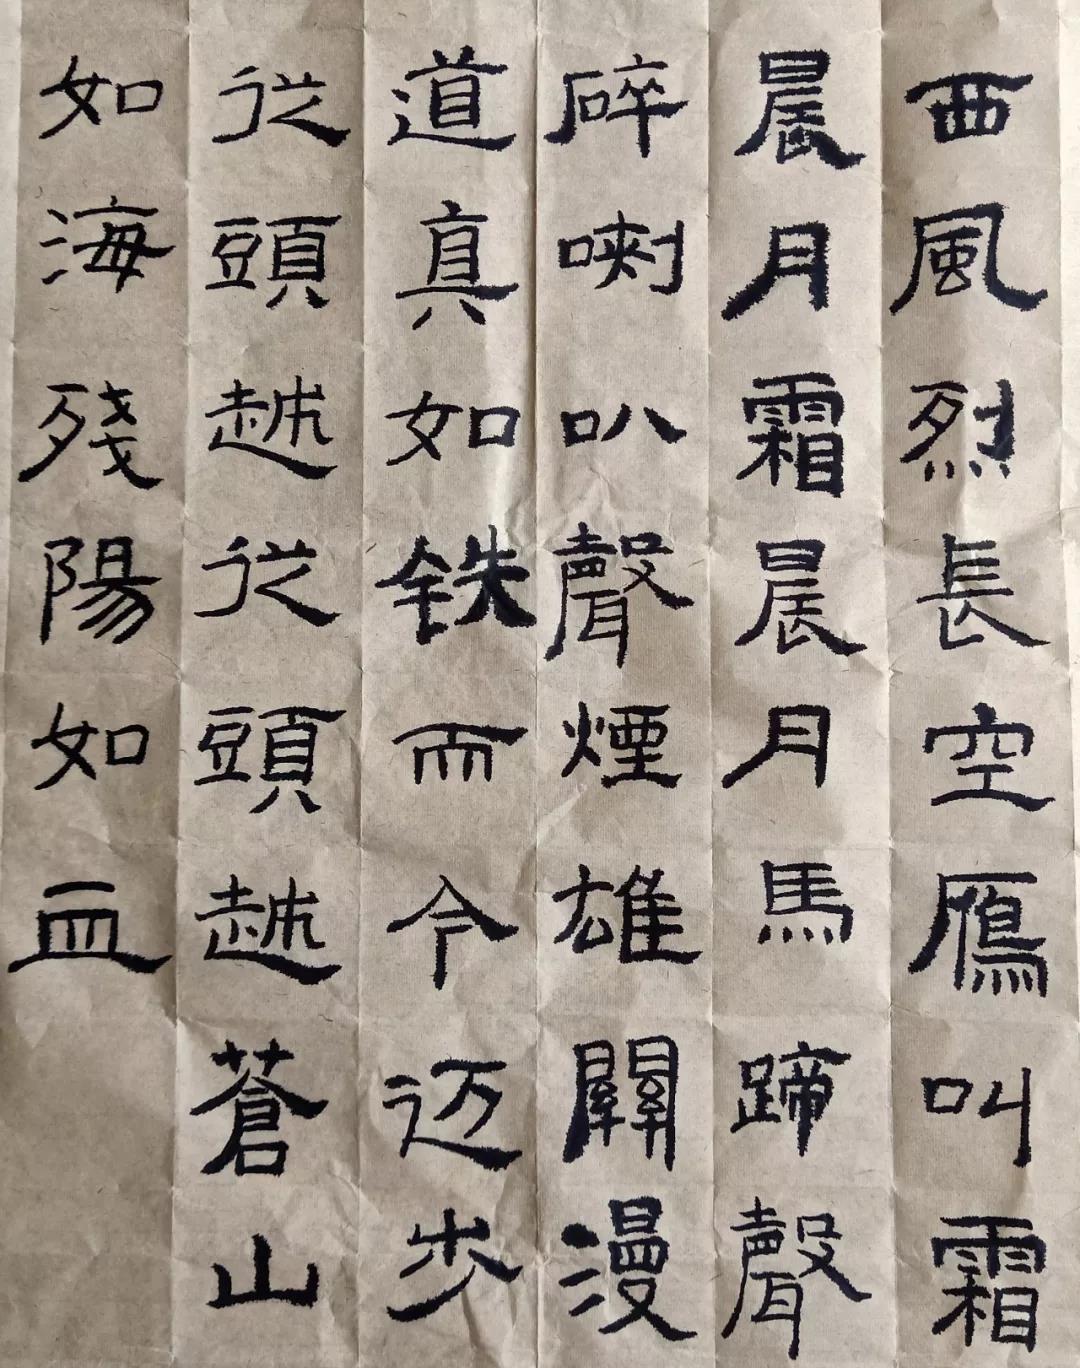 西風烈長空雁叫霜
晨月霜晨月馬蹄聲
碎喇叭聲煙雄關漫
道真如铁而今迈步
從頭越從頭越蒼山
如海殘陽如血